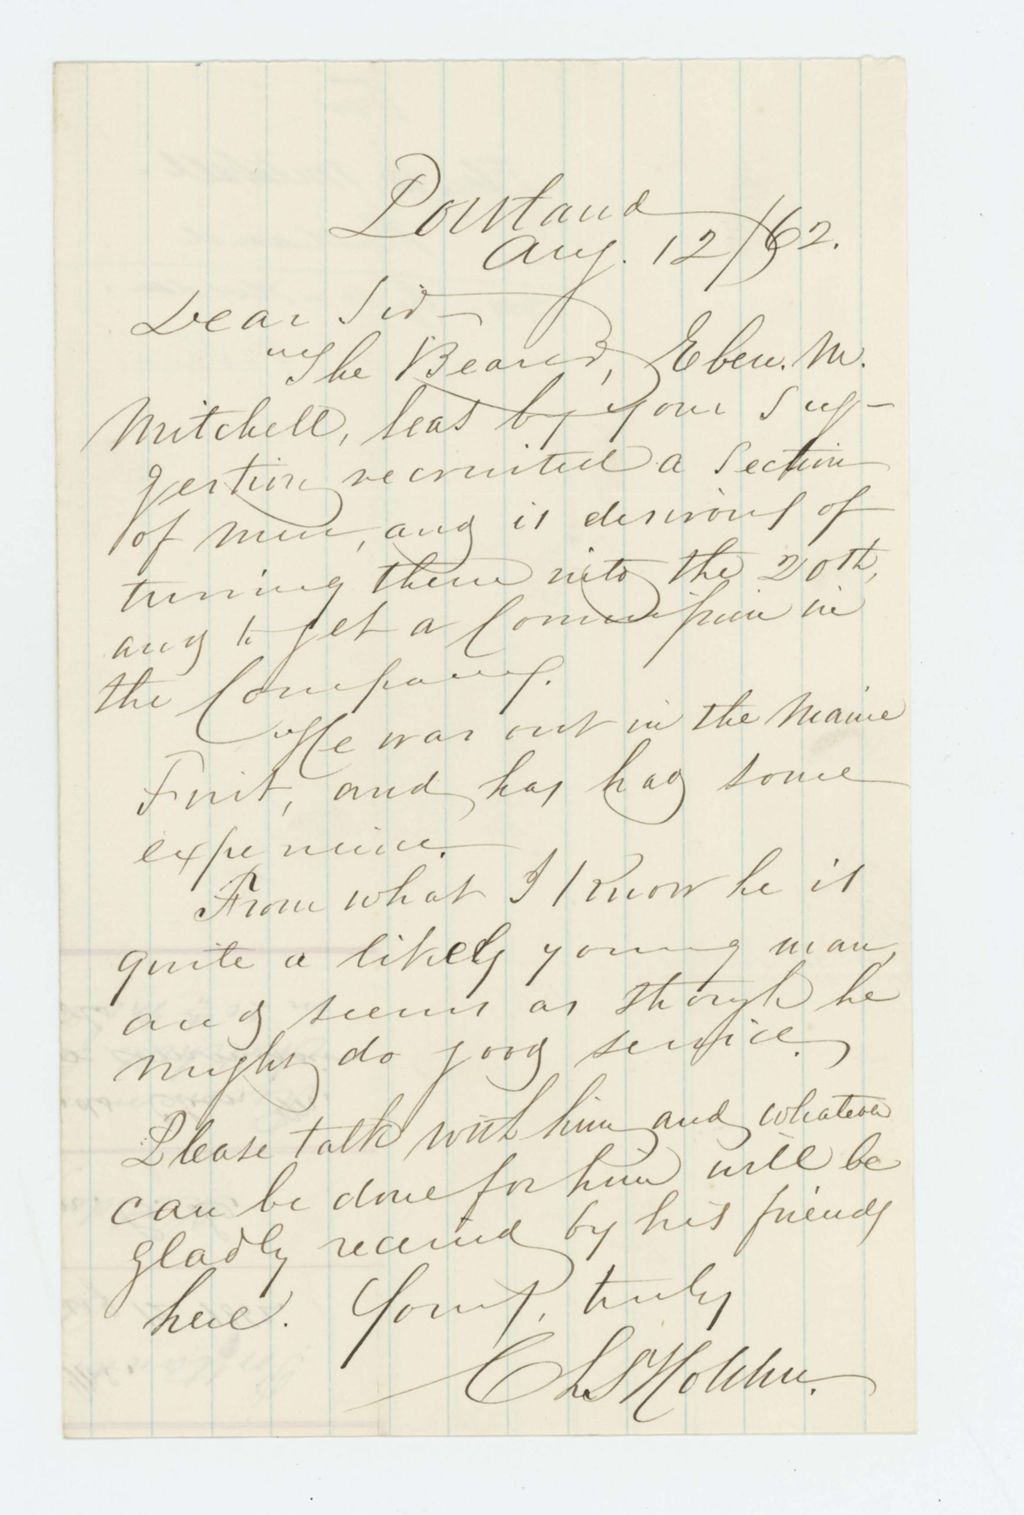 Portland
Aug. 12/62.
Dear Sir
The Bearer, Eben. M.
Mitchell, has by your sug-
gestion recruited a section
of men, and is desirous of
turning them into the 20th,
and to get a Commission in
the Company.
He was out in the Maine
First, and has had some
experience.
From what I know he is
quite a likely young man,
and seems as though he
might do good service.
Please talk with him and whatever
can be done for him will be
gladly received by his friends
here. Yours, truly